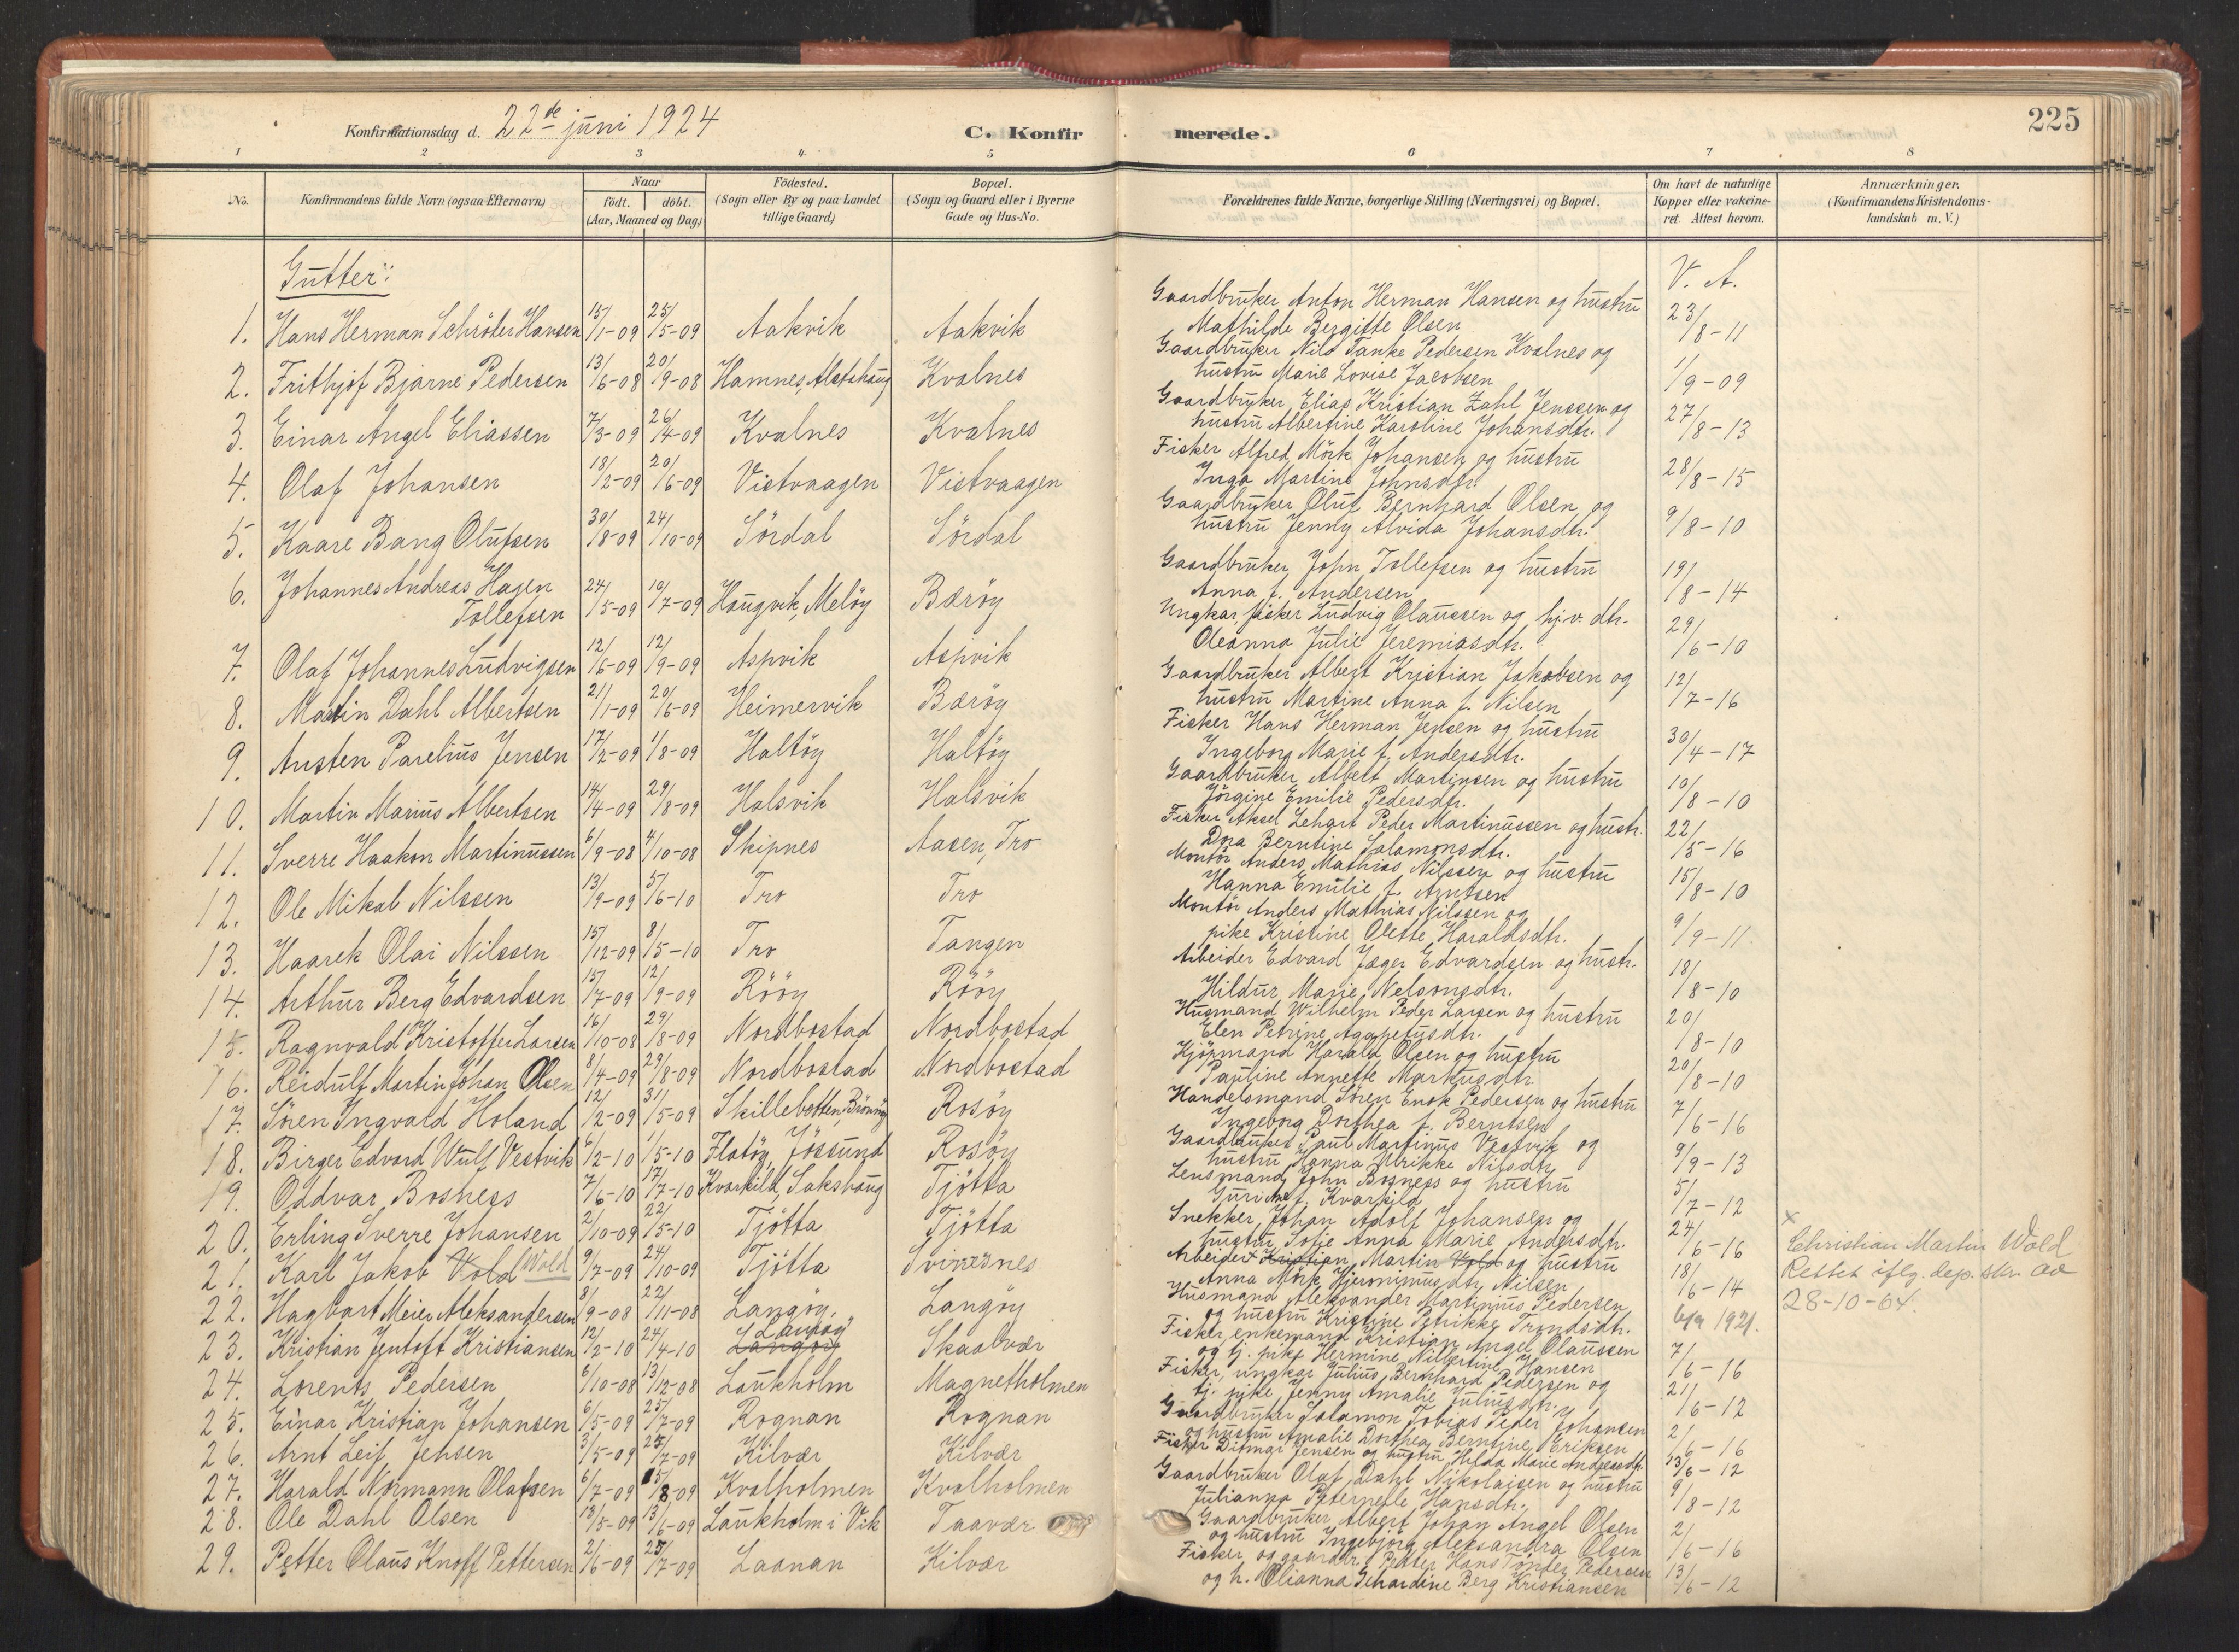 225
Konfirmationsdag d. 22de juni 1924
C. Konfirmerede.
1 2 3 4 5 6 7 8
No.
Konfirmandens fulde Navn (ogsaa Efternavn)
Naar
födt. döbt.
(Aar, Maaned og Dag)
Födested.
(Sogn eller By og paa Landet
tillige Gaard)
Bopæl.
(Sogn og Gaard eller i Byerne
Gade og Hus-No.
Forældrenes fulde Navne, borgerlige Stilling (Næringsvei) og Bopæl.
Om havt de naturlige
Kopper eller vakcine-
ret. Attest herom.
Anmærkninger.
(Konfirmandens Kristendoms-
kundskab m. V.)
Gutter:
V. A.
1. Hans Herman Schröter Hansen 15/1-09 25/5-09 Aakvik Aakvik Gaardbruker Anton Herman Hansen og hustru 23/8-11
Mathilde Bergitte Olsen
2. Frithjof Bjarne Pedersen 13/6-08 20/9-08 Hamnes, Alstahaug Kvalnes Gaardbruker Nils Tanke Pedersen Kvalnes og 1/9-09
hustru Marie Lovise Jacobsen
3. Einar Angel Eliassen 7/3-09 26/4-09 Kvalnes Kvalnes Gaardbruker Elias Kristian Zahl Jenssen og 27/8-13
hustru Albertine Karoline Johansdtr.
4. Olaf Johansen 18/2-09 20/6-09 Vistvaagen Vistvaagen Fisker Alfred Mörk Johansen og hustru 28/8-15
Inga Martine Johnsdtr.
5. Kaare Bang Olufsen 30/8-09 24/10-09 Sördal Sördal Gaardbruker Oluf Bernhard Olsen og 9/8-10
hustru Jenny Alvida Johansdtr.
6. Johannes Andreas Hagen 24/5-09 10/7-09 Haugvik, Melöy Bæröy Gaardbruker John Tollefsen og hustru 19/8-14
Tollefsen Anna f. Andersen
7. Olaf Johannes Ludvigsen 12/6-09 12/9-09 Aspvik Aspvik Ungkar, fisker Ludvig Olaussen og hj.v. dtr. 29/6-10
Oleanna Julie Jeremiasdtr.
8. Martin Dahl Albertsen 21/1-09 20/6-09 Heimervik Bæröy Gaardbruker Albert Kristian Jakobsen og 12/7-16
hustru Martine Anna f. Nilsen
9. Austen Parelius Jensen 17/2-09 1/8-09 Haltöy Haltöy Fisker Hans Herman Jensen og hustru 30/4-17
Ingeborg Marie f. Andersdtr.
10. Martin Marius Albertsen 14/4-09 29/8-09 Halsvik Halsvik Gaardbruker Albert Martinsen og hustru 10/8-10
Jörgine Emilie Pedersdtr.
11. Sverre Haakon Martinussen 6/9-08 4/10-08 Skipnes Aasen, Tro Fisker Aksel Lehart Peder Martinussen og hustr. 22/5-16
Dora Berntine Salamonsdtr.
12. Ole Mikal Nilssen 13/9-09 5/6-10 Tro Tro Montör Anders Mathias Nilssen og hustru 15/8-10
Hanna Emilie f. Arntsen
13. Haarek Olai Nilssen 15/12-09 8/5-10 Tro Tangen Montör Anders Mathias Nilssen og 9/9-11
pike Kristine Olette Haraldsdtr.
14. Arthur Berg Edvardsen 15/7-09 12/9-09 Rööy Rööy Arbeider Edvard Jæger Edvardsen og hustr. 18/8-10
Hildur Marie Nelsonsdtr.
15. Ragnvald Kristoffer Larsen 16/10-08 29/8-09 Nordbostad Nordbostad Husmand Wilhelm Peder Larsen og hustru 20/8-10
Elen Petrine Agapetusdtr.
16. Reidulf Martin Johan Olsen 8/4-09 29/8-09 Nordbostad Nordbostad Kjörmand Harald Olsen og hustru 20/8-10
Pauline Annette Markusdtr.
17. Sören Ingvald Holand 12/2-09 31/5-09 Skillebotten, Brönnöy Rosöy Handelsmand Sören Enok Pedersen og hustru 7/6-16
Ingeborg Dorthea f. Berntsen
18. Birger Edvard Wulf Vestvik 6/2-10 1/5-10 Flatöy, Jössund Rosöy Gaardbruker Paul Martinus Vestvik og 9/9-13
hustru Hanna Ulrikke Nilsdtr.
19. Oddvar Bosness 7/6-10 17/7-10 Kvarkild, Sakshaug Tjötta Lensmand John Bosness og hustru 5/7-12
Guri f. Kvarkild
20. Erling Sverre Johansen 2/10-09 22/5-10 Tjötta Tjötta Snekker Johan Adolf Johansen og 24/6-16
hustru Sofie Anna Marie Andersdtr.
21. Karl Jakob Vold Wold 9/7-09 24/10-09 Tjötta Svinesnes Arbeider x Kristian Martin Vold og hustru 18/6-14
Anna Mörk Hjeronimusdtr. Nilsen
x
Christian Martin Wold
Rettet iflg. dep. skr. av
28-10-64.
22. Hagbart Meier Aleksandersen 8/9-08 22/11-08 Langöy Langöy Husmand Aleksander Martinus Pedersen 1921.
og hustru Kristine Petrikke Trondsdtr.
23. Kristian Jentoft Kristiansen 12/2-10 24/4-10 Langöy Skaalvær Fisker, enkemand Kristian Angel Olaussen 7/6-16
og tj. pike Hermine Nilbertine Hansen
24. Lorents Pedersen 6/10-08 13/12-08 Laukholm Magnetholmen Fisker, ungkar Julius Bernhard Pedersen og 21/6-12
tj. pike Jenny Amalie Juliusdtr.
25. Einar Kristian Johansen 6/5-09 25/7-09 Rognan Rognan Gaardbruker Salamon Tobias Peder Johansen 2/6-16
og hustru Amalie Dorthea Berntine Eriksen
26. Arnt Leif Jensen 3/5-09 25/7-09 Kilvær Kilvær Fisker Ditmar Jensen og hustru Hilda Marie Andreasdtr. 13/6-12
27. Harald Normann Olafsen 6/7-09 15/8-09 Kvalholmen Kvalholmen Gaardbruker Olaf Dahl Nikolaisen og hustru 9/8-12
Julianna Peternelle Hansdtr.
28. Ole Dahl Olsen 13/5-09 13/6-09 Laukholm i Vik Taavær Gaardbruker Albert Johan Angel Olsen 2/6-16
og hustru Ingebjörg Aleksandra Olsen
29. Petter Olaus Knoff Pettersen 2/6-09 25/7-09 Laanan Kilvær Fisker og gaardbr. Petter Hans Tönder Pedersen 13/6-12
og h. Olianna Gehardine Berg Kristiansen